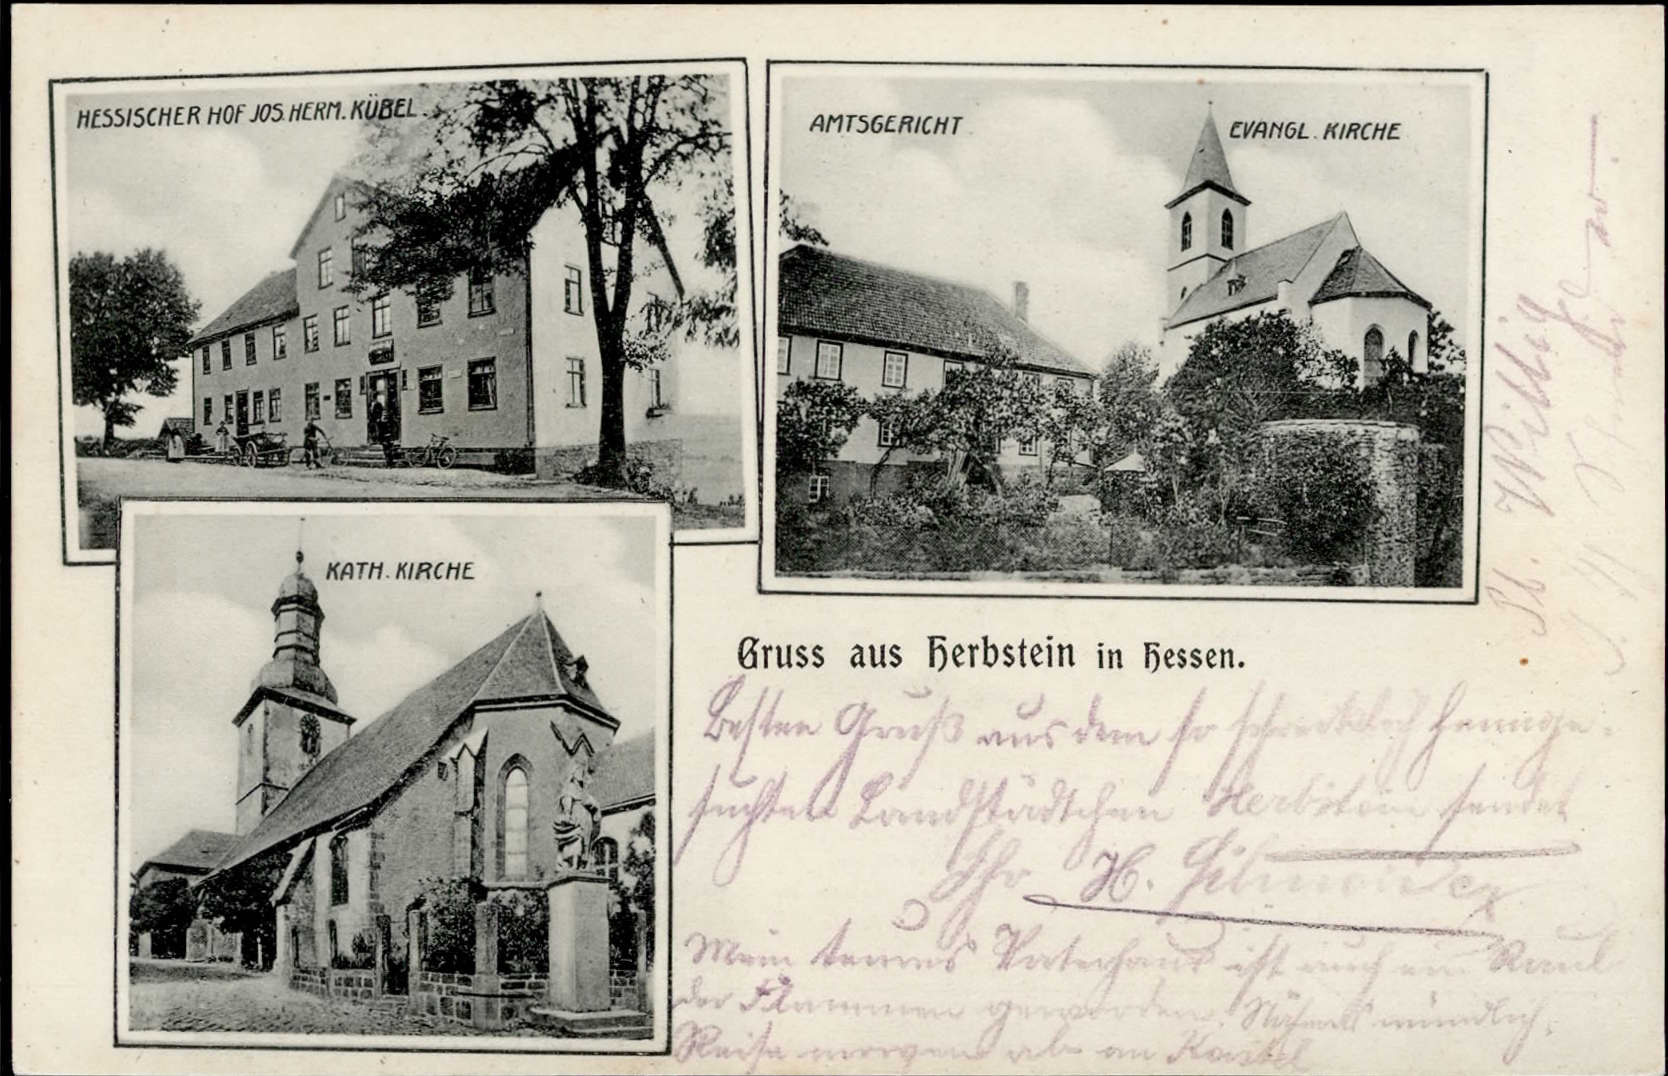 HESSISCHER HOF JOS. HERM. KÜBEL.
AMTSGERICHT
EVANGL. KIRCHE
KATH. KIRCHE
Gruss aus Herbstein in Hessen.
Besten Gruß aus dem so schrecklich heimge-
suchten Landstädtchen Herbstein sendet
Ihr H.
Mein teures Vaterhaus ist auch ein Raub
der Flammen geworden. Näheres mündlich.
Reise morgen ab